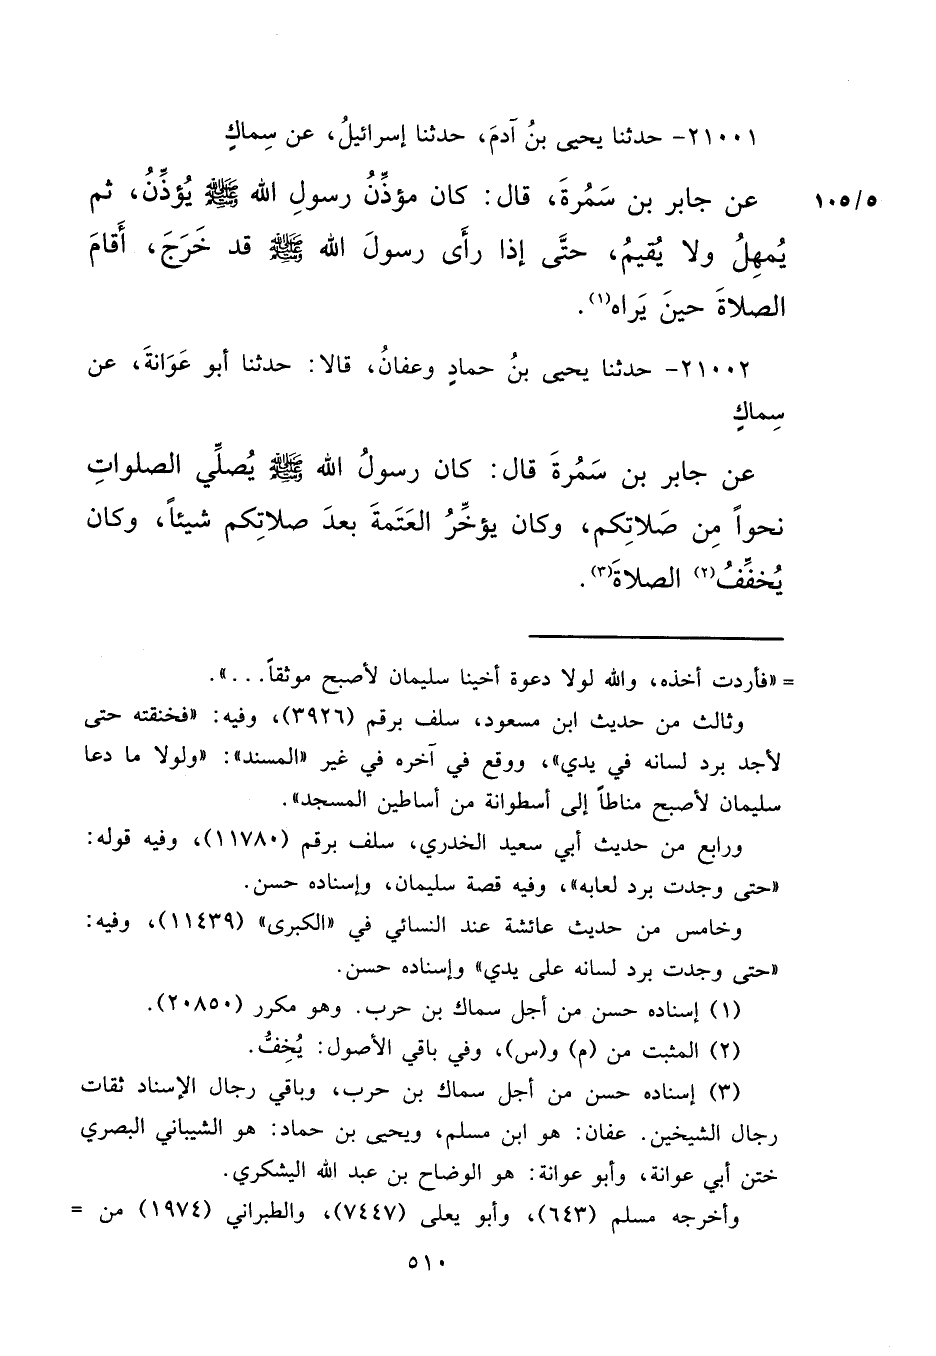 ٢١٠٠١- حدثنا يحيى بنُ آدمَ، حدثنا إسرائيلُ، عن سِماكٍ
عن جابر بن سَمُرةَ، قال: كان مؤذِّنُ رسولِ الله ﷺ يُؤذِّنُ، ثم
١٠٥/٥
يُمهِلُ ولا يُقيمُ، حتَّى إذا رأى رسولَ الله ﷺ قد خَرَجَ، أَقامَ
الصلاةَ حينَ يَراه(١).
٢١٠٠٢- حدثنا يحيى بنُ حمادٍ وعفانُ، قالا: حدثنا أبو عَوَانةَ، عن
سِماكٍ
عن جابر بن سَمُرةَ قال: كان رسولُ الله ﷺ يُصلِّي الصلواتِ
نحواً مِن صَلاتِكم، وكان يؤخِّرُ العَتَمةَ بعدَ صلاتِكم شيئاً، وكان
يُخفِّفُ(٢) الصلاةَ(٣).
= «فأردت أخذه، والله لولا دعوة أخينا سليمان لأصبح موثقاً...».
وثالث من حديث ابن مسعود، سلف برقم (٣٩٢٦)، وفيه: «فخنقته حتى
لأجد برد لسانه في يدي»، ووقع في آخره في غير «المسند»: «ولولا ما دعا
سليمان لأصبح مناطاً إلى أسطوانة من أساطين المسجد».
ورابع من حديث أبي سعيد الخدري، سلف برقم (١١٧٨٠)، وفيه قوله:
«حتى وجدت برد لعابه»، وفيه قصة سليمان، وإسناده حسن.
وخامس من حديث عائشة عند النسائي في «الكبرى» (١١٤٣٩)، وفيه:
«حتى وجدت برد لسانه على يدي» وإسناده حسن.
(١) إسناده حسن من أجل سماك بن حرب. وهو مكرر (٢٠٨٥٠).
(٢) المثبت من (م) و(س)، وفي باقي الأصول: يُخِفُّ.
(٣) إسناده حسن من أجل سماك بن حرب، وباقي رجال الإسناد ثقات
رجال الشيخين. عفان: هو ابن مسلم، ويحيى بن حماد: هو الشيباني البصري
ختن أبي عوانة، وأبو عوانة: هو الوضاح بن عبد الله اليشكري.
وأخرجه مسلم (٦٤٣)، وأبو يعلى (٧٤٤٧)، والطبراني (١٩٧٤) من =
٥١٠